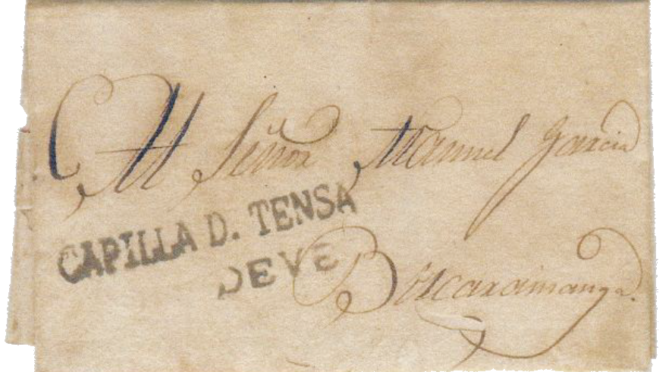 Al Señor Manuel Garcia
CAPILLA D. TENSA
DEVE
Bucaramanga.